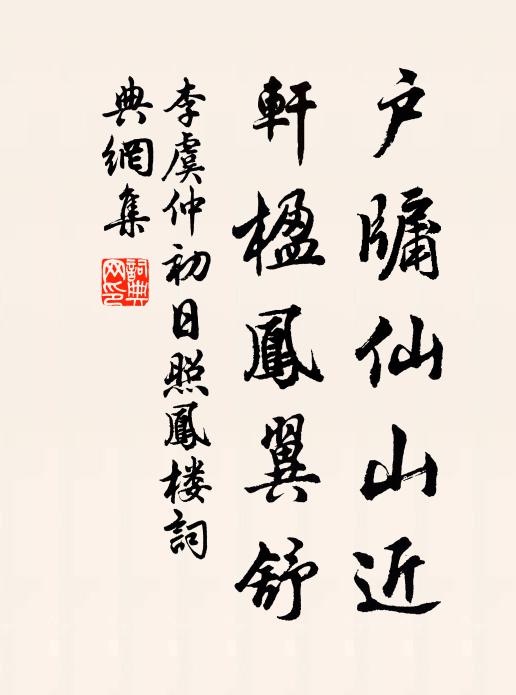 户牖仙山近
軒楹鳳翼舒
李虞仲初日照鳳楼詞
典網集
詞典
网印